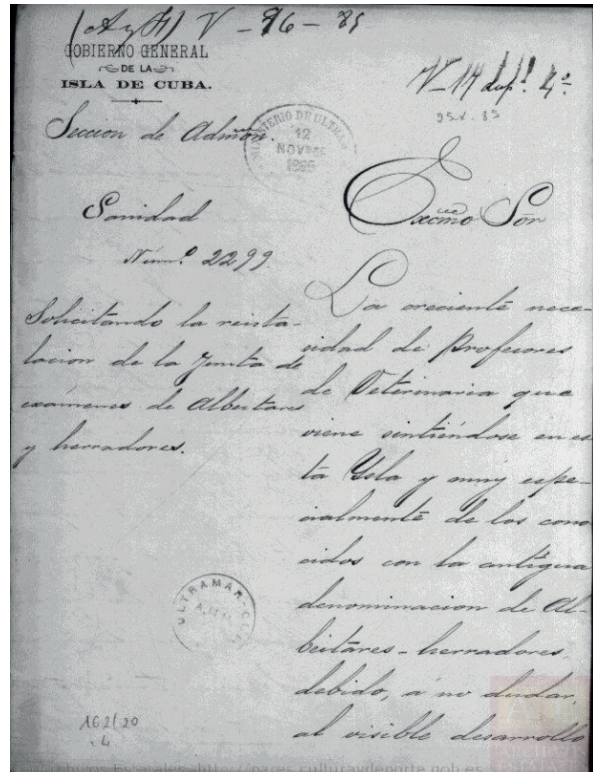 (A y F) V - 96 - 85
GOBIERNO GENERAL
DE LA
ISLA DE CUBA.
V-14 dup.º 4º
25.V.85
Seccion de Admón.
MINISTERIO DE ULTRAMAR
12
NOV
Sanidad
Núm.º 2299
Solicitando la reinsta-
lacion de la Junta de
exámenes de Albeitares
y herradores.
Excmo Sór
La creciente nece-
cidad de Profesores
de Veterinaria que
viene sintiéndose en es
ta Ysla y muy espe-
cialmente de los cono
cidos con la antigua
denominacion de Al-
beitares-herradores,
debido, a no dudar,
al visible desarrollo
ULTRAMAR
162/20
.4
http://pares.culturaydeporte.gob.es